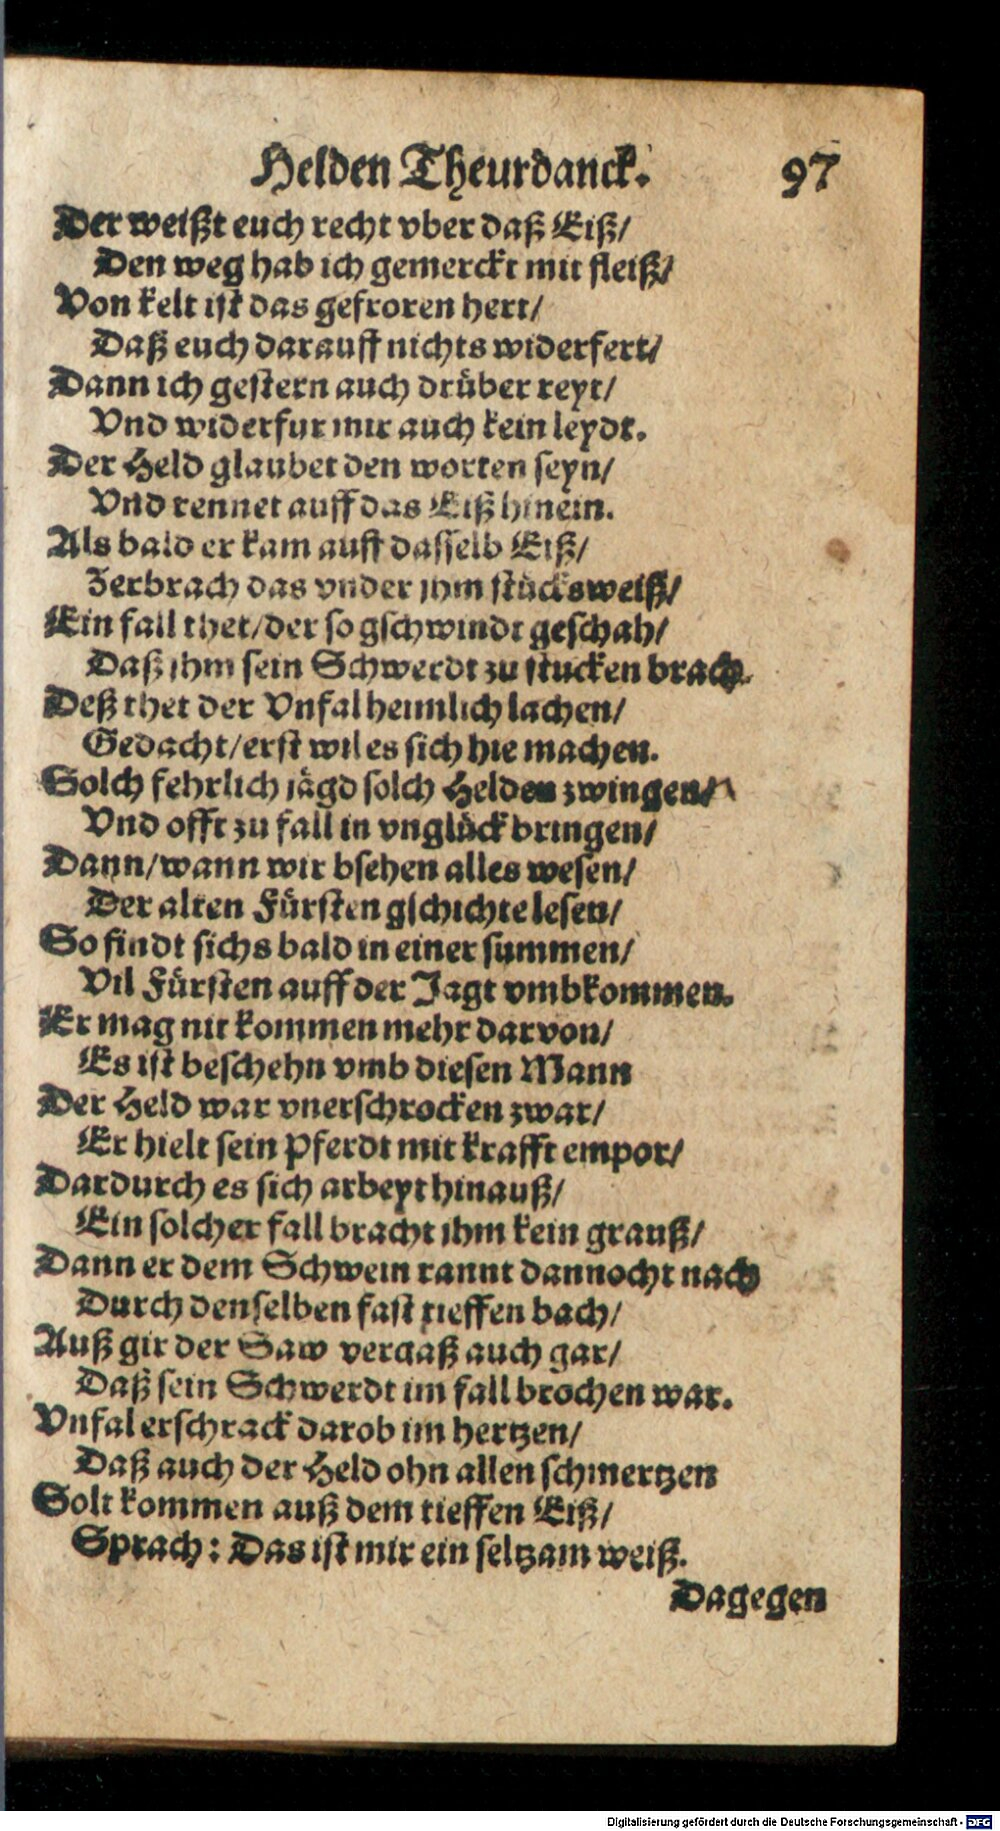 Helden Theurdanck. 97
Der weißt euch recht vber daß Eiß/
Den weg hab ich gemerckt mit fleiß/
Von kelt ist das gefroren hert/
Daß euch darauff nichts widerfert/
Dann ich gestern auch drüber reyt/
Vnd widerfur mir auch kein leydt.
Der Held glaubet den worten seyn/
Vnd rennet auff das Eiß hinein.
Als bald er kam auff dasselb Eiß/
Zerbrach das vnder jhm stücksweiß/
Ein fall thet/der so gschwindt geschah/
Daß jhm sein Schwerdt zu stucken brach.
Deß thet der Vnfal heimlich lachen/
Gedacht/erst wil es sich hie machen.
Solch fehrlich jägd solch Helden zwingen/
Vnd offt zu fall in vnglück bringen/
Dann/wann wir bsehen alles wesen/
Der alten Fürsten gschichte lesen/
So findt sichs bald in einer summen/
Vil Fürsten auff der Jagt vmbkommen.
Er mag nit kommen mehr darvon/
Es ist beschehn vmb diesen Mann
Der Held war vnerschrocken zwar/
Er hielt sein Pferdt mit krafft empor/
Dardurch es sich arbeyt hinauß/
Ein solcher fall bracht jhm kein grauß/
Dann er dem Schwein rannt dannocht nach
Durch denselben fast tieffen bach/
Auß gir der Saw vergaß auch gar/
Daß sein Schwerdt im fall brochen war.
Vnfal erschrack darob im hertzen/
Daß auch der Held ohn allen schmertzen
Solt kommen auß dem tieffen Eiß/
Sprach: Das ist mir ein seltzam weiß.
Dagegen
Digitalisierung gefördert durch die Deutsche Forschungsgemeinschaft - DFG